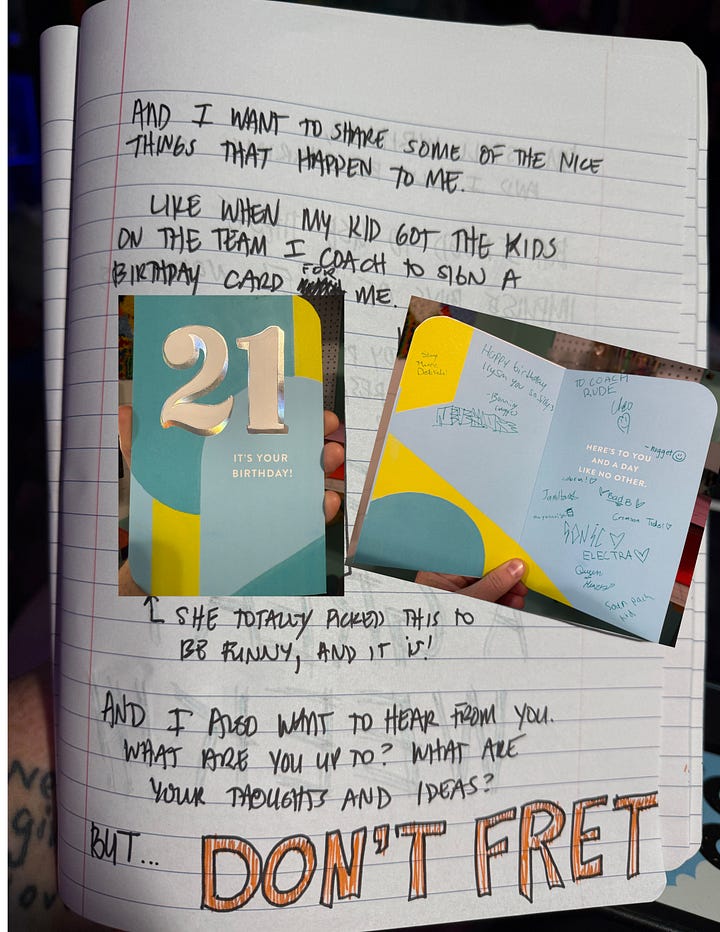 AND I WANT TO SHARE SOME OF THE NICE
THINGS THAT HAPPEN TO ME.
LIKE WHEN MY KID GOT THE KIDS
ON THE TEAM I COACH TO SIGN A
BIRTHDAY CARD FOR ME.
21
IT'S YOUR
BIRTHDAY!
Happy birthday
Ilysm you so silly
TO COACH
RUDE
Cleo
-Nugget
HERE'S TO YOU
AND A DAY
LIKE NO OTHER.
Bad B
Crimson Tide!
SONIC
ELECTRA
Queen
SHE TOTALLY PICKED THIS TO
BE FUNNY, AND IT is!
AND I ALSO WANT TO HEAR FROM YOU.
WHAT ARE YOU UP TO? WHAT ARE
YOUR THOUGHTS AND IDEAS?
BUT... DON'T FRET